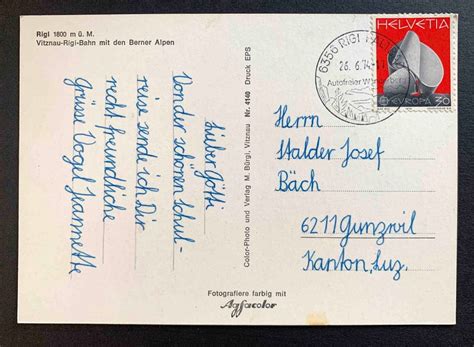 Rigi 1800 m ü. M.
Vitznau-Rigi-Bahn mit den Berner Alpen
Lieber Götti
Von der schönen Schul-
reise sende ich Dir
recht freundliche
Grüsse Vogel Jeannette
Color-Photo und Verlag M. Bürgi, Vitznau Nr. 4140 Druck EPS
Fotografiere farbig mit
Agfacolor
6356 RIGI
26.6.74-17
Autofreier
HELVETIA
EUROPA 30
Herrn
Stalder Josef
Bäch
6211 Gunzwil
Kanton, Luz.